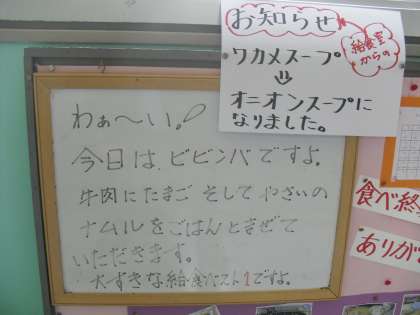 お知らせ
給食室
からの
ワカメスープ
⇩
オニオンスープに
なりました。
わぁ〜い。!
今日は、ビビンバですよ。
牛肉にたまご そして やさいの
ナムルをごはんとまぜて
いただきます。
大すきな給食ベスト1ですよ。
食べ終
ありが